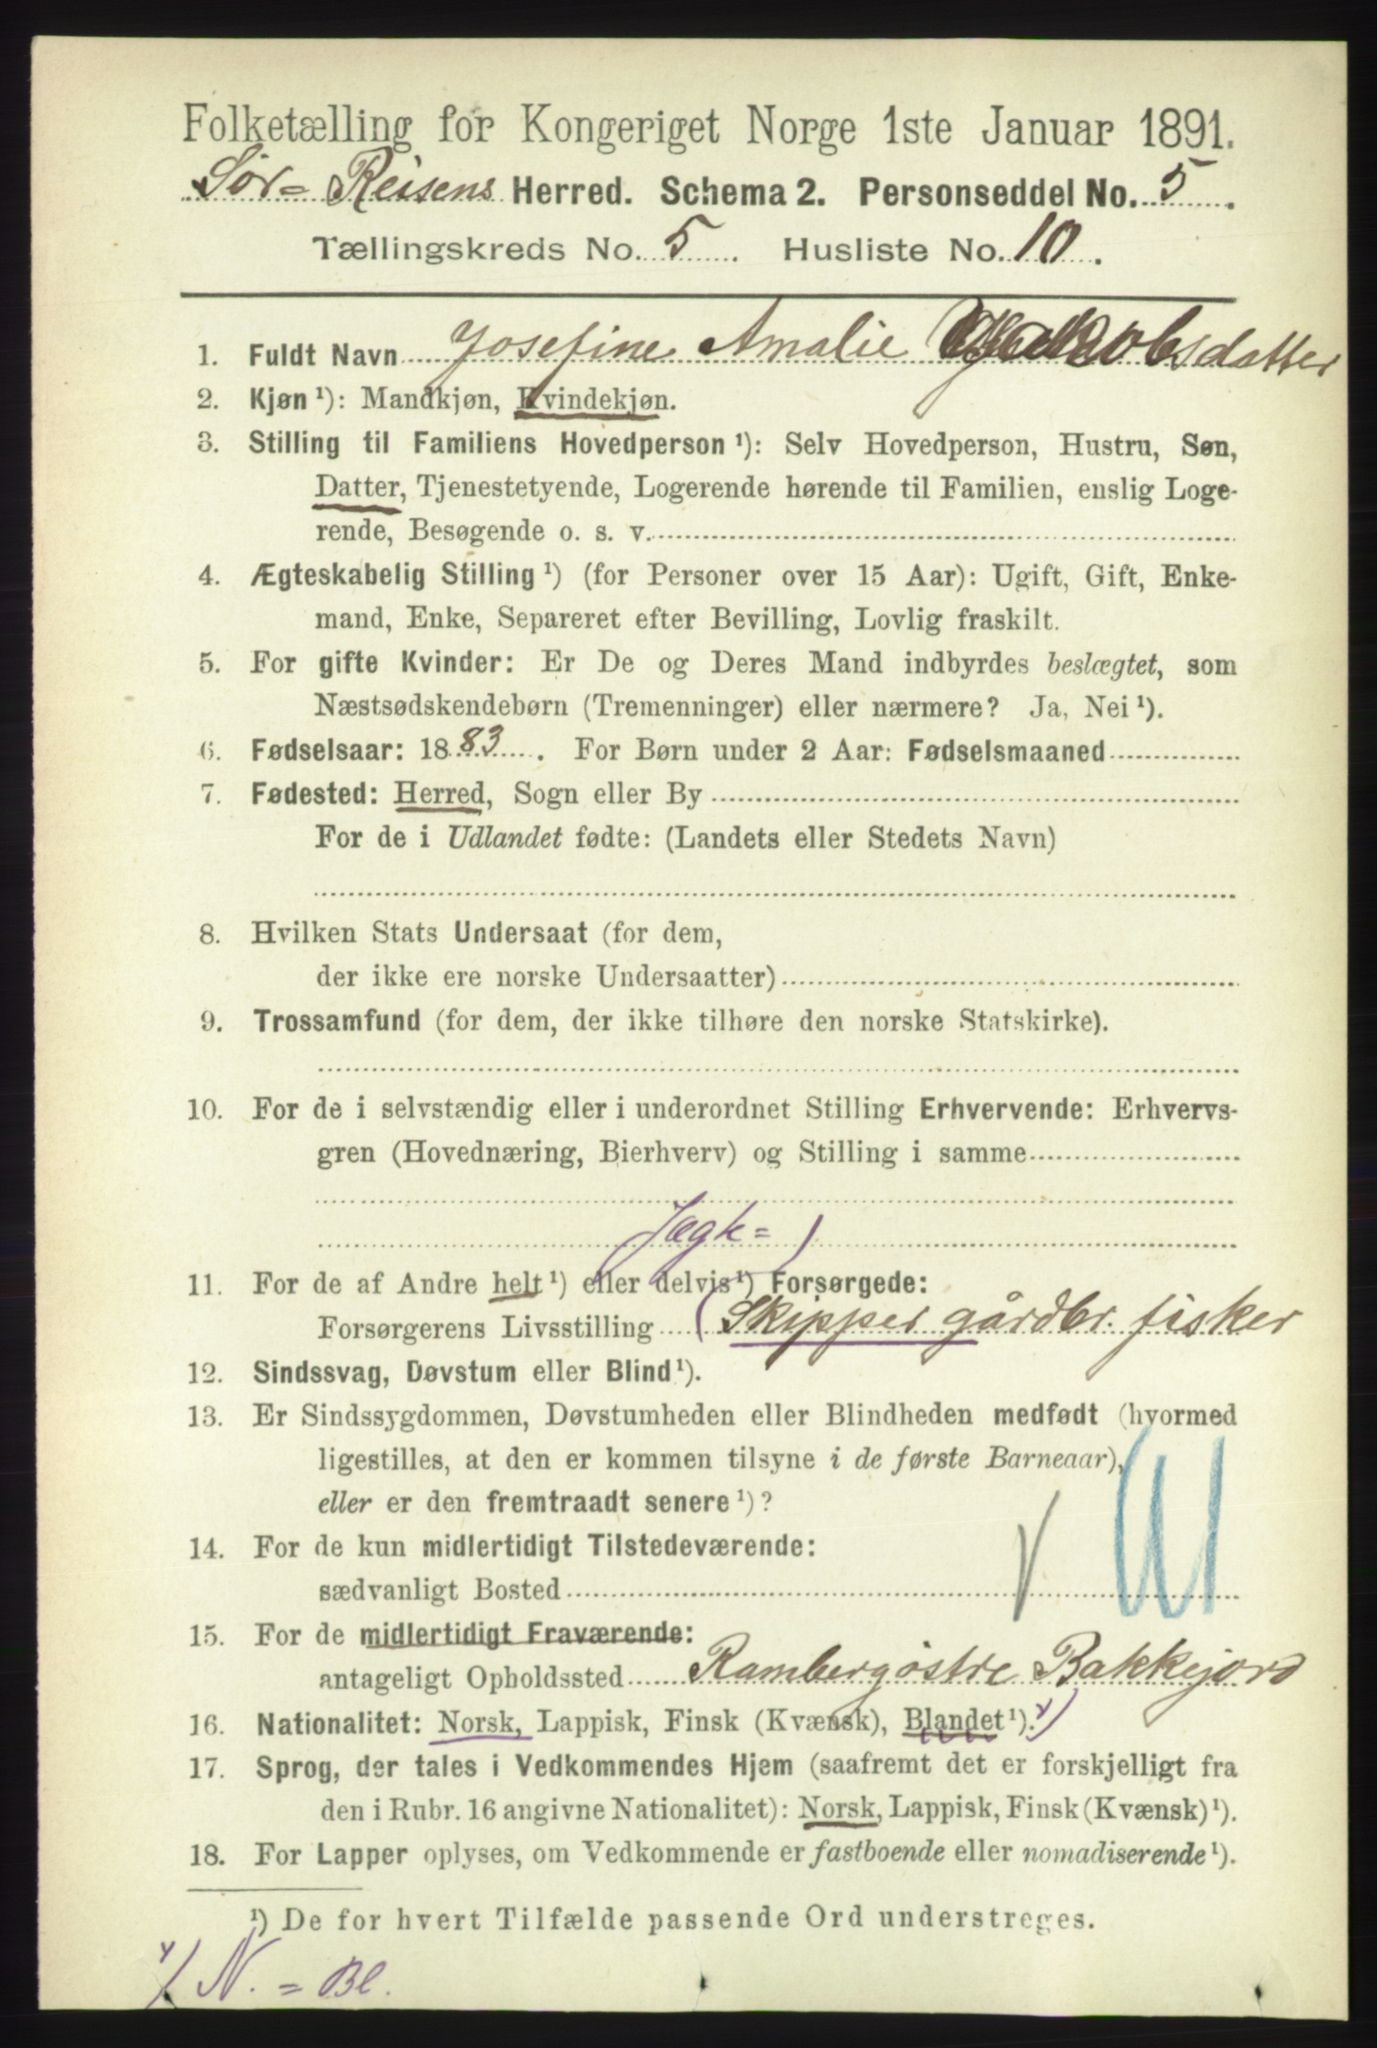 Folketælling for Kongeriget Norge 1ste Januar 1891.
Sør-Reisens Herred. Schema 2. Personseddel No. 5.
Tællingskreds No. 5. Husliste No. 10.
1. Fuldt Navn Josefine Amalie Jakobsdatter
2. Kjøn ¹): Mandkjøn, Kvindekjøn.
3. Stilling til Familiens Hovedperson ¹): Selv Hovedperson, Hustru, Søn,
Datter, Tjenestetyende, Logerende hørende til Familien, enslig Loge-
rende, Besøgende o. s. v.
4. Ægteskabelig Stilling ¹) (for Personer over 15 Aar): Ugift, Gift, Enke-
mand, Enke, Separeret efter Bevilling, Lovlig fraskilt.
5. For gifte Kvinder: Er De og Deres Mand indbyrdes beslægtet, som
Næstsødskendebørn (Tremenninger) eller nærmere? Ja, Nei ¹).
6. Fødselsaar: 1883. For Børn under 2 Aar: Fødselsmaaned
7. Fødested: Herred, Sogn eller By
For de i Udlandet fødte: (Landets eller Stedets Navn)
8. Hvilken Stats Undersaat (for dem,
der ikke ere norske Undersaatter)
9. Trossamfund (for dem, der ikke tilhøre den norske Statskirke).
10. For de i selvstændig eller i underordnet Stilling Erhvervende: Erhvervs-
gren (Hovednæring, Bierhverv) og Stilling i samme
(Jægt=)
11. For de af Andre helt ¹) eller delvis ¹) Forsørgede:
Forsørgerens Livsstilling (Skipper gårdbr. fisker
12. Sindssvag, Døvstum eller Blind ¹).
13. Er Sindssygdommen, Døvstumheden eller Blindheden medfødt (hvormed
ligestilles, at den er kommen tilsyne i de første Barneaar),
eller er den fremtraadt senere ¹)?
14. For de kun midlertidigt Tilstedeværende:
sædvanligt Bosted
15. For de midlertidigt Fraværende:
antageligt Opholdssted Rambergøstre Bakkejord
16. Nationalitet: Norsk, Lappisk, Finsk (Kvænsk), Blandet ¹). ʏ)
17. Sprog, der tales i Vedkommendes Hjem (saafremt det er forskjelligt fra
den i Rubr. 16 angivne Nationalitet): Norsk, Lappisk, Finsk (Kvænsk) ¹).
18. For Lapper oplyses, om Vedkommende er fastboende eller nomadiserende ¹).
¹) De for hvert Tilfælde passende Ord understreges.
ʏ) N. = Bl.